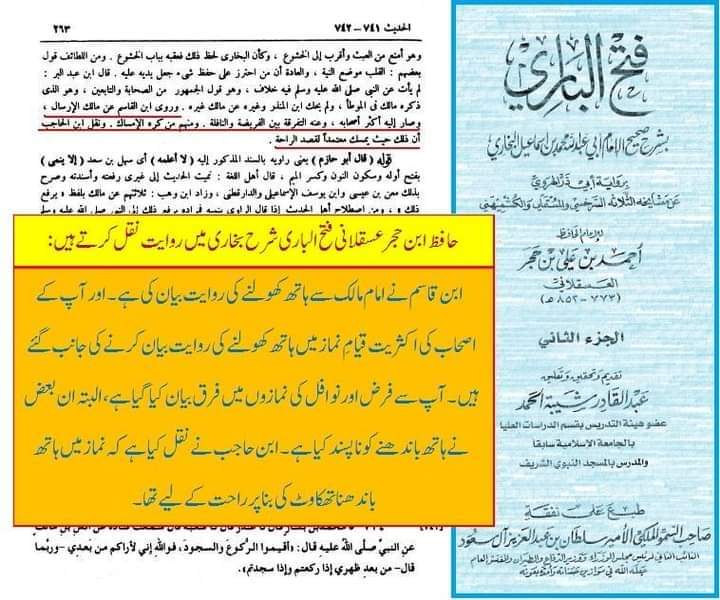 الحديث ٧٤١ - ٧٤٢
٢٦٣
وهو أمنع من العبث وأقرب إلى الخشوع ، وكأن البخارى لحظ ذلك فعقبه بباب الخشوع . ومن اللطائف قول
بعضهم : القلب موضع النية ، والعادة أن من احترز على حفظ شىء جعل يديه عليه . قال ابن عبد البر :
لم يأت عن النبي صلى الله عليه وسلم فيه خلاف ، وهو قول الجمهور من الصحابة والتابعين ، وهو الذى
ذكره مالك فى الموطأ ، ولم يحك ابن المنذر وغيره عن مالك غيره . وروى ابن القاسم عن مالك الإرسال ،
وصار إليه أكثر أصحابه ، وعنه التفرقة بين الفريضة والنافلة . ومنهم من كره الإمساك . ونقل ابن الحاجب
أن ذلك حيث يمسك معتمداً لقصد الراحة .
قوله ( قال أبو حازم ) يعنى راويه بالسند المذكور إليه ( لا أعلمه ) أى سهل بن سعد ( إلا ينمى )
بفتح أوله وسكون النون وكسر الميم ، قال أهل اللغة : نميت الحديث إلى غيرى رفعته وأسندته وصرح
بذلك معن بن عيسى وابن يوسف الإسماعيلى والدارقطنى ، وزاد ابن وهب : ثلاثتهم عن مالك بلفظ « يرفع
ذلك » ، ومن اصطلاح أهل الحديث إذا قال الراوى ينميه فمراده يرفع ذلك إلى النبي صلى الله عليه وسلم
حافظ ابن حجر عسقلانی فتح الباری شرح بخاری میں روایت نقل کرتے ہیں:
ابن قاسم نے امام مالک سے ہاتھ کھولنے کی روایت بیان کی ہے۔ اور آپ کے
اصحاب کی اکثریت قیامِ نماز میں ہاتھ کھولنے کی روایت بیان کرنے کی جانب گئے
ہیں۔ آپ سے فرض اور نوافل کی نمازوں میں فرق بیان کیا گیا ہے، البتہ ان بعض
نے ہاتھ باندھنے کو ناپسند کیا ہے۔ ابن حاجب نے نقل کیا ہے کہ نماز میں ہاتھ
باندھنا تھکاوٹ کی بنا پر راحت کے لیے تھا۔
عن النبي صلى الله عليه قال : «أقيموا الركوع والسجود، فوالله إني لأراكم من بعدي - وربما
قال- من بعد ظهري إذا ركعتم وإذا سجدتم».
فتح الباري
بشرح صحيح الإمام أبي عبد الله محمد بن إسماعيل البخاري
برواية أبي ذر الهروي
عن مشايخه الثلاثة السرخسي والمستملي والكشميهني
للإمام الحافظ
أحمد بن علي بن حجر
العسقلاني
(٧٧٣ - ٨٥٢ هـ)
الجزء الثاني
تقديم وتحقيق وتعليق
عبد القادر شيبة الحمد
عضو هيئة التدريس بقسم الدراسات العليا
بالجامعة الإسلامية سابقا
والمدرس بالمسجد النبوي الشريف
طبع على نفقة
صاحب السمو الملكي الأمير سلطان بن عبد العزيز آل سعود
النائب الثاني لرئيس مجلس الوزراء ووزير الدفاع والطيران والمفتش العام